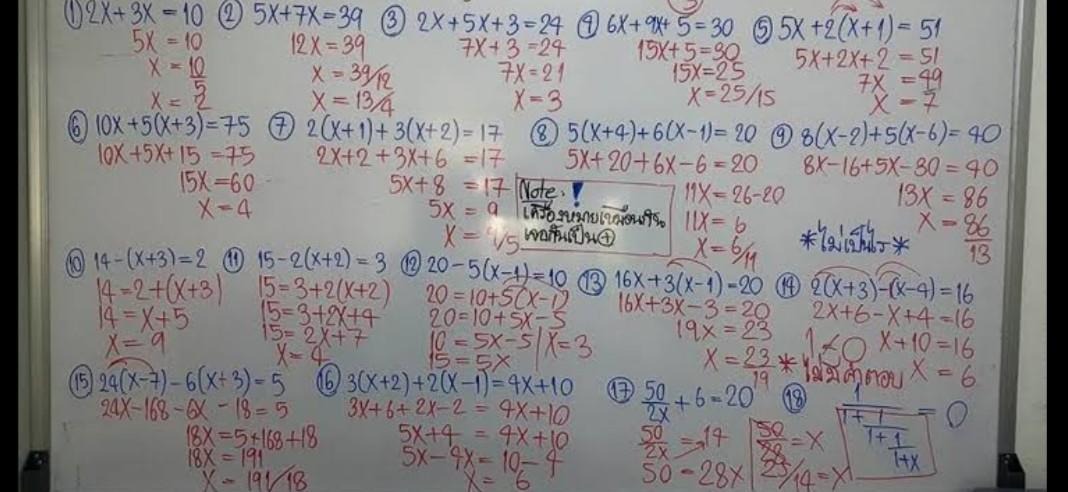 ① 2X+3X=10
5X=10
X=10/5
X=2
② 5X+7X=39
12X=39
X=39/12
X=13/4
③ 2X+5X+3=24
7X+3=24
7X=21
X=3
④ 6X+9X+5=30
15X+5=30
15X=25
X=25/15
⑤ 5X+2(X+1)=51
5X+2X+2=51
7X=49
X=7
⑥ 10X+5(X+3)=75
10X+5X+15=75
15X=60
X=4
⑦ 2(X+1)+3(X+2)=17
2X+2+3X+6=17
5X+8=17
5X=9
X=9/5
⑧ 5(X+4)+6(X-1)=20
5X+20+6X-6=20
11X=26-20
11X=6
X=6/11
Note. !
เครื่องหมายเหมือนกัน
เจอกันเป็น ⊕
⑨ 8(X-2)+5(X-6)=40
8X-16+5X-30=40
13X=86
X=86/13
*ไม่เป็นไร*
⑩ 14-(X+3)=2
14=2+(X+3)
14=X+5
X=9
⑪ 15-2(X+2)=3
15=3+2(X+2)
15=3+2X+4
15=2X+7
X=4
⑫ 20-5(X-1)=10
20=10+5(X-1)
20=10+5X-5
10=5X-5
15=5X
X=3
⑬ 16X+3(X-1)=20
16X+3X-3=20
19X=23
X=23/19
⑭ 2(X+3)-(X-4)=16
2X+6-X+4=16
X+10=16
X=6
⑮ 24(X-7)-6(X+3)=5
24X-168-6X-18=5
18X=5+168+18
18X=191
X=191/18
⑯ 3(X+2)+2(X-1)=4X+10
3X+6+2X-2=4X+10
5X+4=4X+10
5X-4X=10-4
X=6
⑰ 50/2X+6=20
50/2X=14
50=28X
50/28=X
25/14=X
⑱ 1/(1+1/(1+1/(1+X)))=0
*ไม่มีคำตอบ